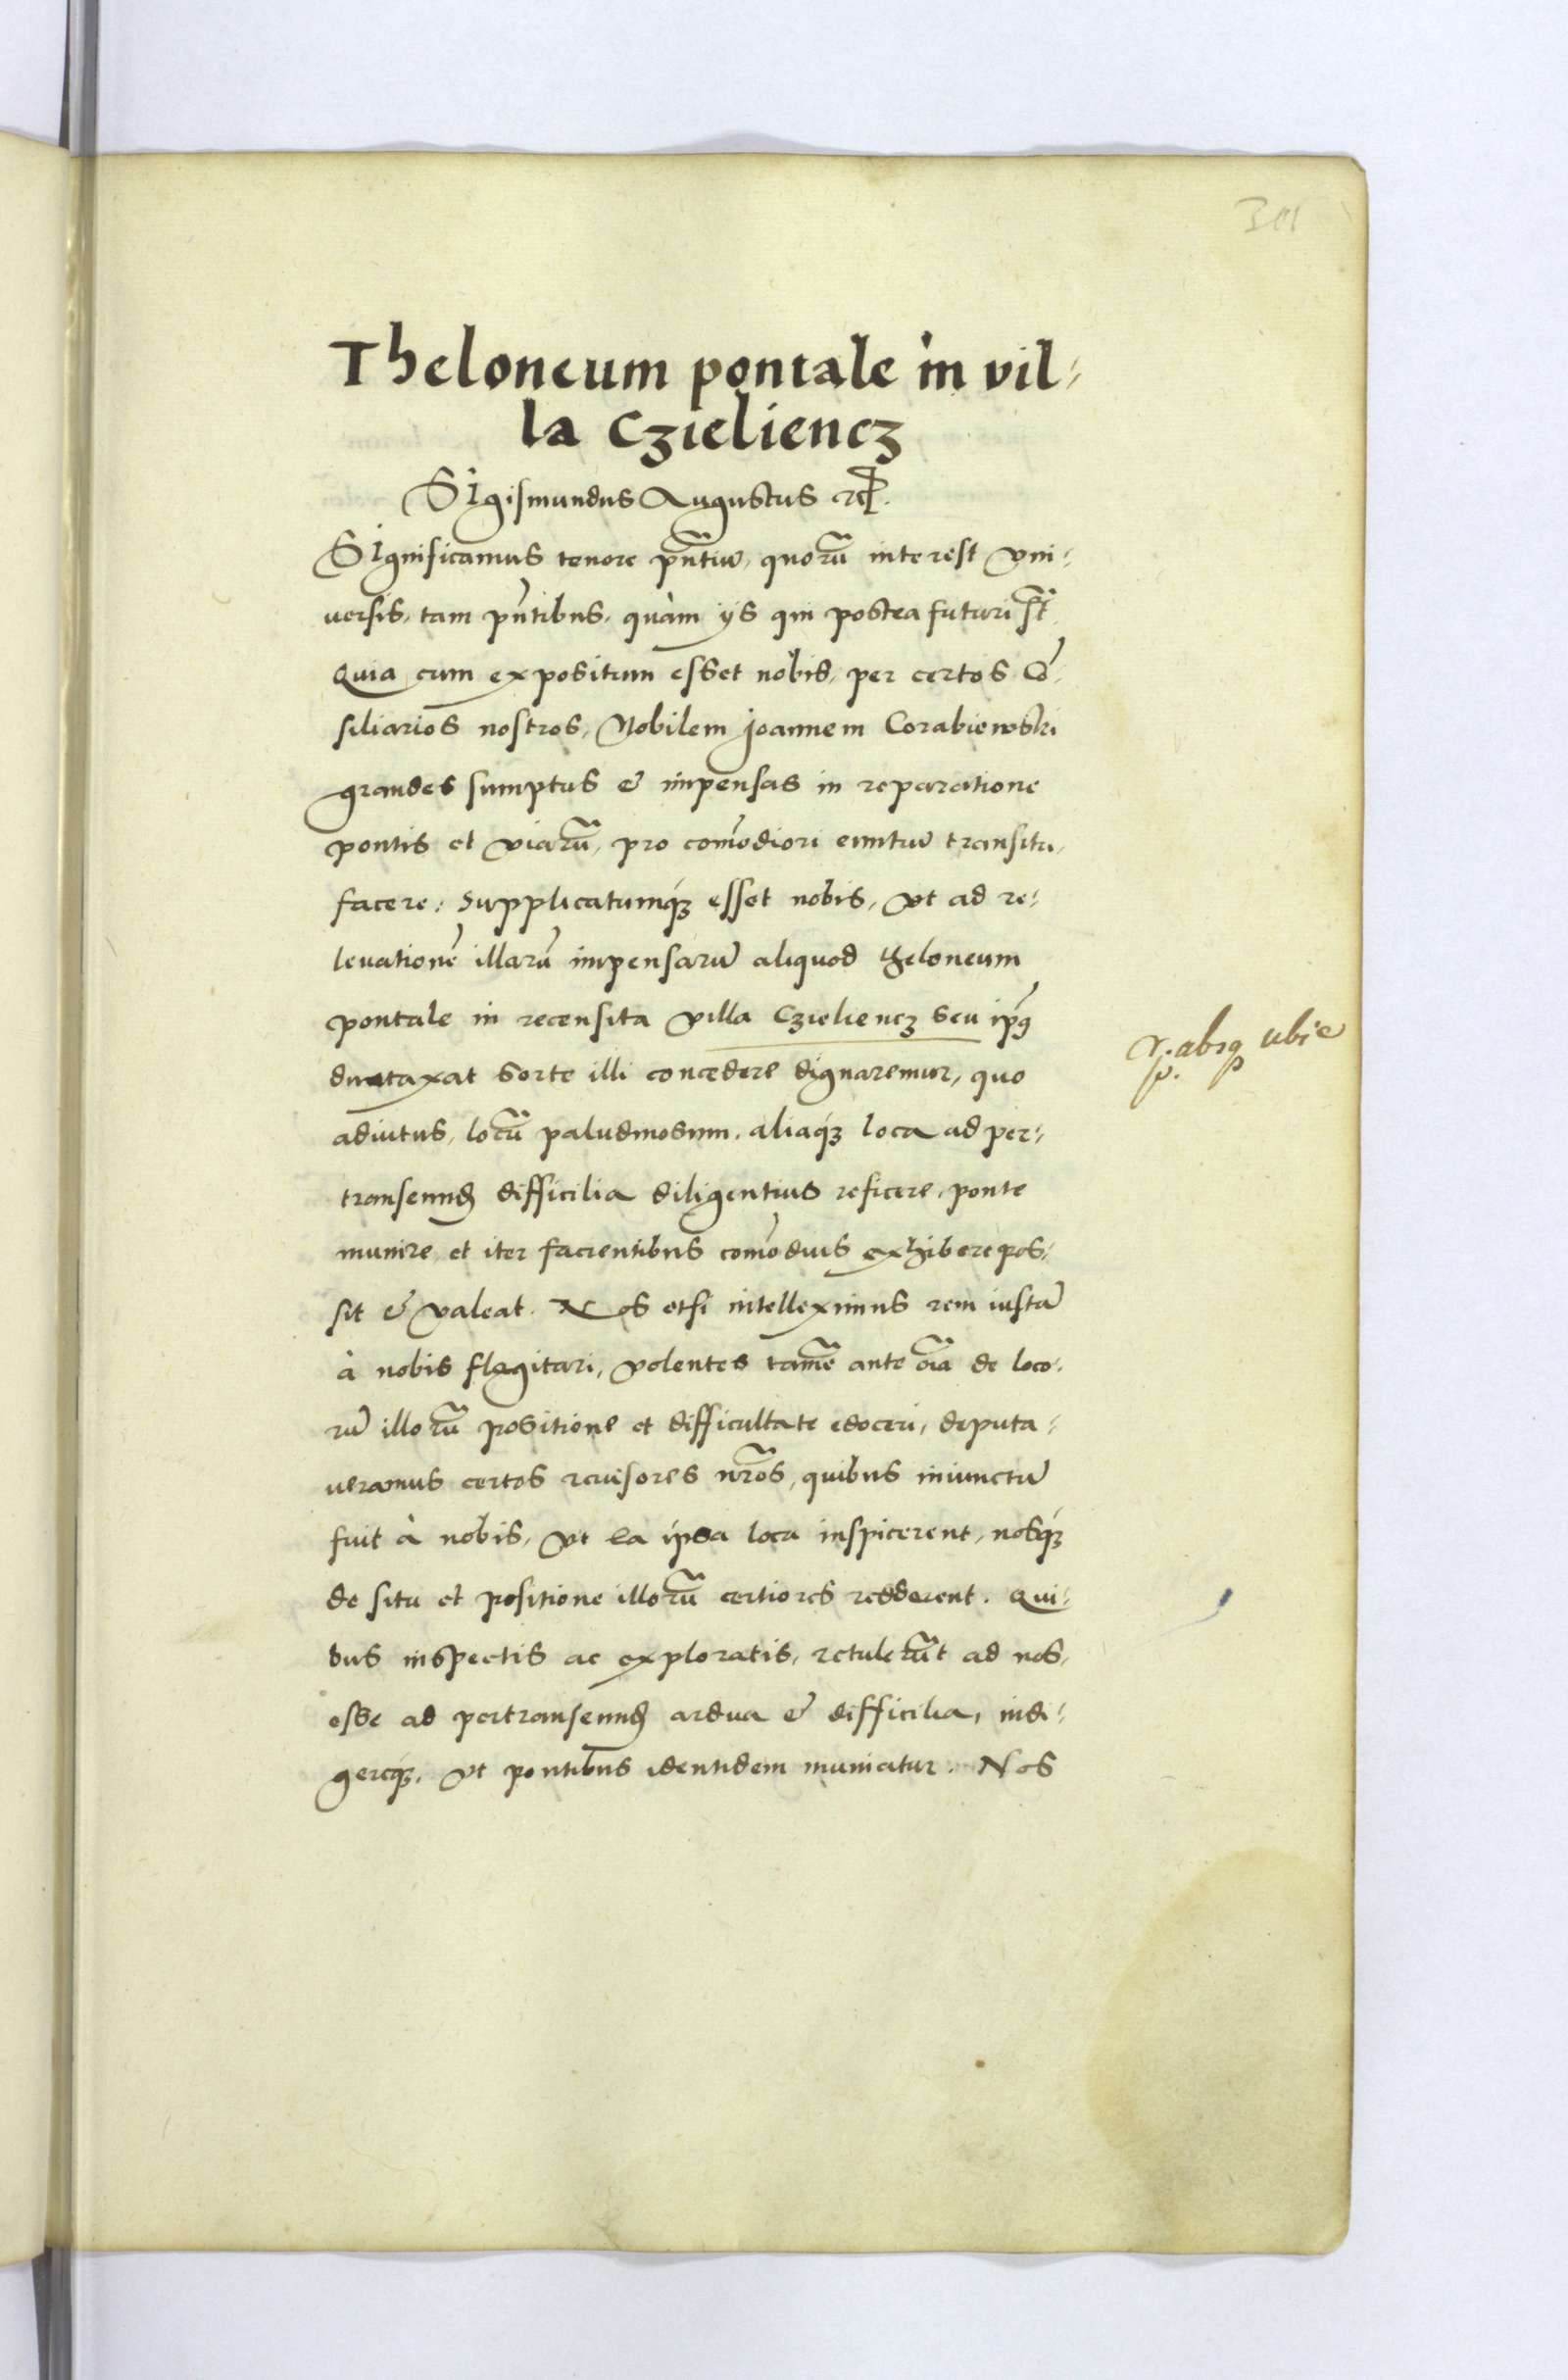 301
Theloneum pontale in vil-
la Czieliencz
SIgismundus Augustus etc.
SIgnificamus tenore pn̄tiū, quorū interest Vni-
uersis, tam pn̄tibus, quàm ijs qui postea futuri st̄.
Quia cum expositum esset nobis, per certos Cō-
siliarios nostros, Nobilem Joannem Corabiewski
grandes sumptus & impensas in reparatione
pontis et viarū, pro com̄odiori euntiū transitu,
facere: supplicatumq́ꝫ esset nobis, Vt ad re-
leuationē illarū impensarū aliquod theloneum
pontale in recensita villa Czieliencz seu ipsius
duntaxat sorte illi concedere dignaremur, quo
adiutus, locū paludinosum, aliaq́ꝫ loca ad per-
transeund̄ difficilia diligentius reficere, ponte
munire et iter facientibus com̄odius exhibere pos-
sit & valeat. Nos etsi intelleximus rem iustā
à nobis flagitari, volentes tamē ante oīa de loco-
rū illorū positione et difficultate edoceri, deputa-
ueramus certos reuisores nr̄os, quibus iniunctū
fuit à nobis, Vt ea ipsa loca inspicerent, nosq́ꝫ
de situ et positione illorū certiores redderent. Qui-
bus inspectis ac exploratis, retulerūt ad nos,
esse ad pertranseund̄ ardua & difficilia, indi-
gereq́ꝫ, Vt pontibus identidem muniatur. Nos